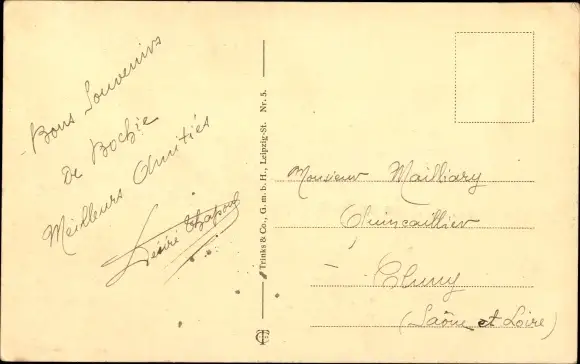 Bons Souvenirs
De Bochie
Meilleurs Amitiés
Désiré Chapuis
Trinks & Co., G. m. b. H., Leipzig-St. Nr. 5.
Monsieur Mailliary
Quincaillier
Cluny
(Saône et Loire)